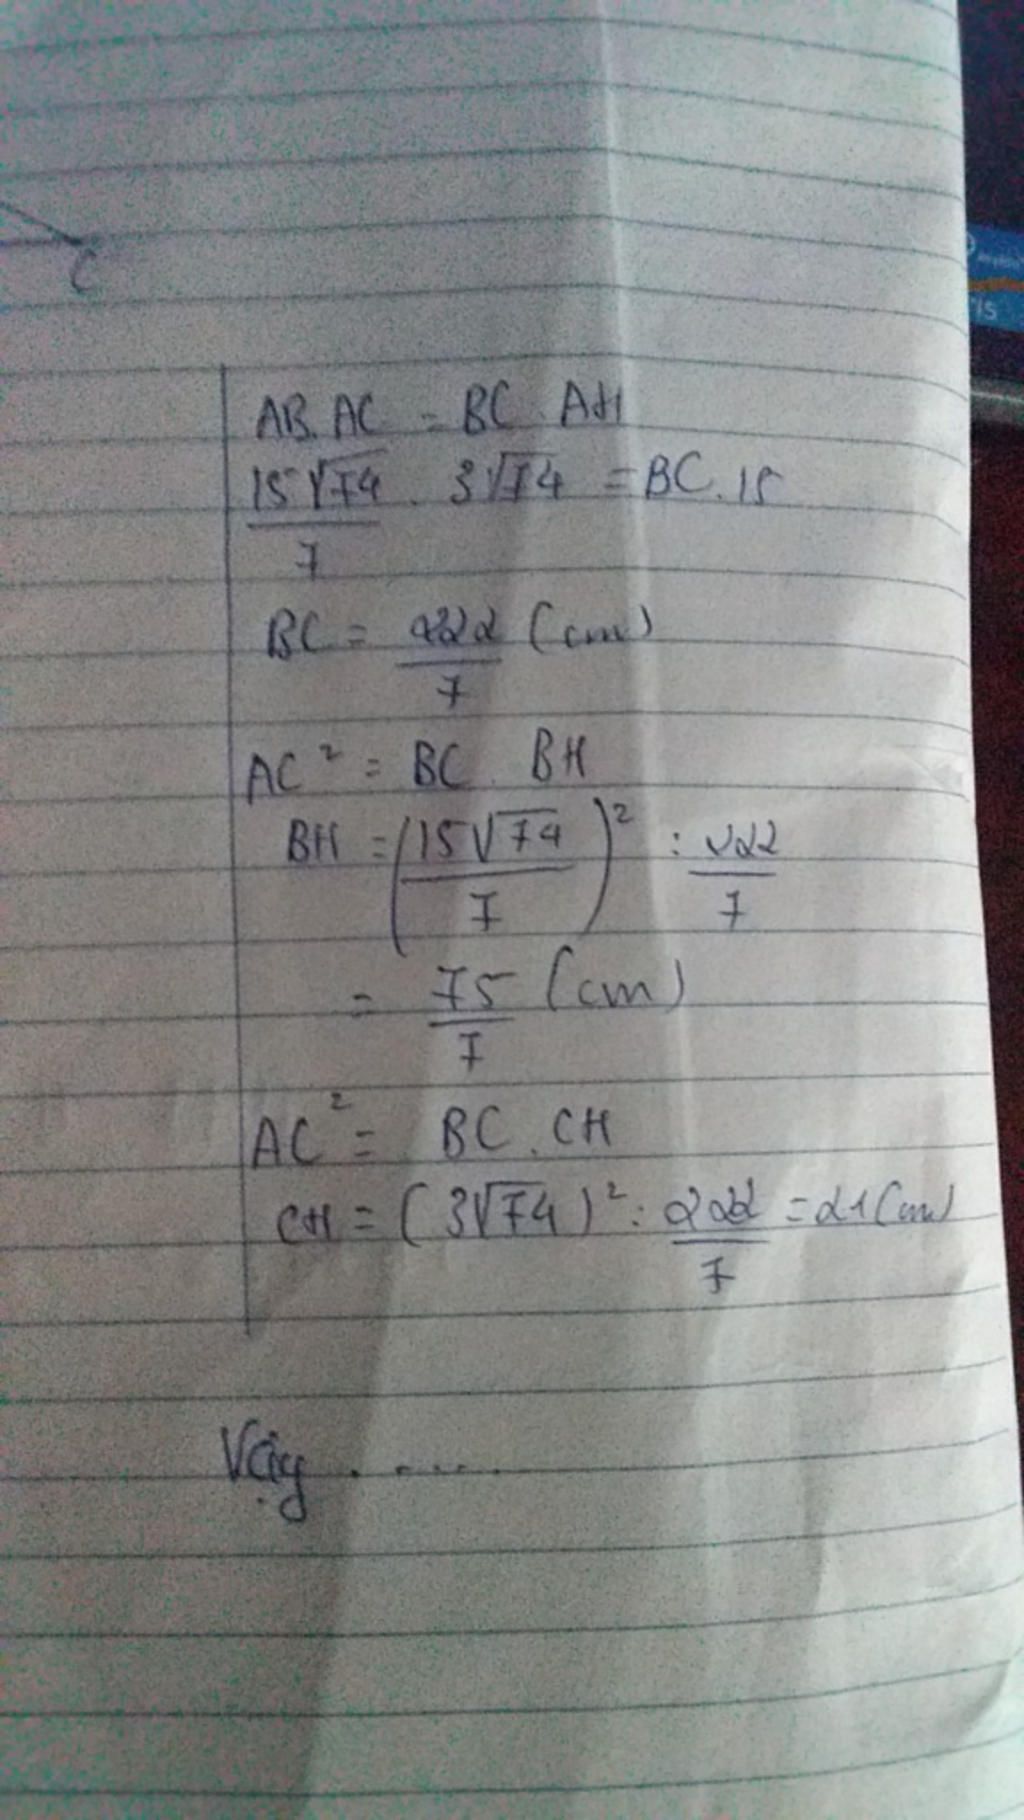 C
AB. AC = BC. AH
15√74/7 . 3√74 = BC. 15
BC = 222/7 (cm)
AC² = BC. BH
BH = (15√74/7)² : 222/7
= 75/7 (cm)
AC² = BC. CH
CH = (3√74)² : 222/7 = 21 (cm)
Vậy . . . . .